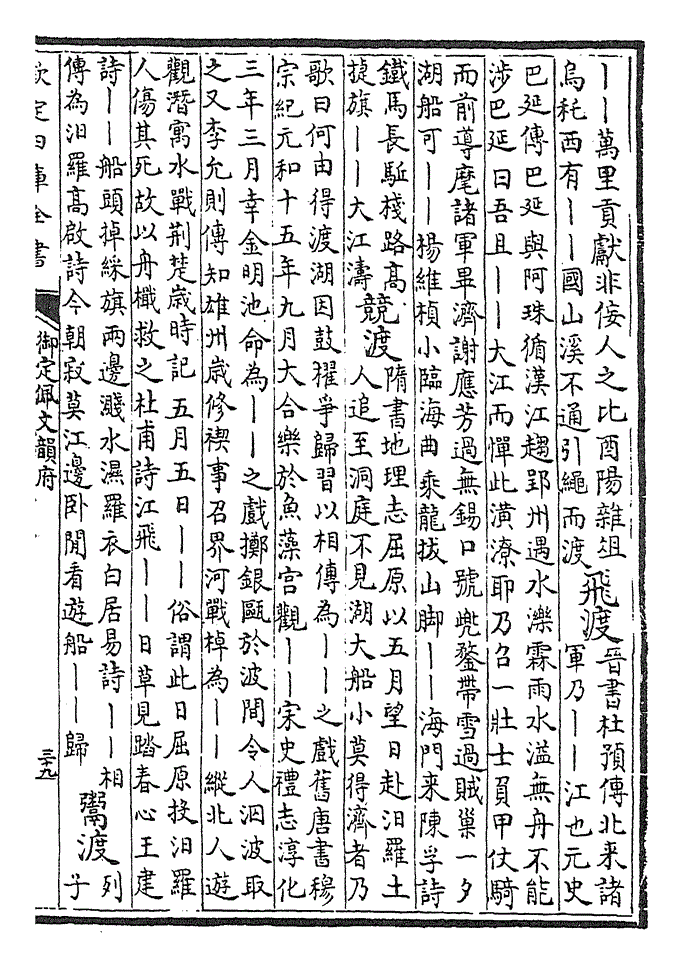 ｜｜萬里貢獻非倿人之比酉陽雜俎
烏秅西有｜｜國山溪不通引繩而渡
飛渡
晉書杜預傳北来諸
軍乃｜｜江也元史
巴延傳巴延與阿珠循漢江趨郢州遇水濼霖雨水溢無舟不能
涉巴延曰吾且｜｜大江而憚此潢潦耶乃召一壯士負甲仗騎
而前導麾諸軍畢濟謝應芳過無錫口號兠鍪帶雪過賊巢一夕
湖船可｜｜楊維楨小臨海曲乘龍拔山脚｜｜海門来陳孚詩
鐵馬長駈棧路高
捷旗｜｜大江濤
競渡
隋書地理志屈原以五月望日赴汨羅土
人追至洞庭不見湖大船小莫得濟者乃
歌曰何由得渡湖因鼓櫂爭歸習以相傳為｜｜之戲舊唐書穆
宗紀元和十五年九月大合樂於魚藻宫觀｜｜宋史禮志淳化
三年三月幸金明池命為｜｜之戲擲銀甌於波間令人泅波取
之又李允則傳知雄州嵗修禊事召界河戰棹為｜｜縱北人遊
觀潛寓水戰荆楚嵗時記五月五日｜｜俗謂此日屈原投汨羅
人傷其死故以舟檝救之杜甫詩江飛｜｜日草見踏春心王建
詩｜｜船頭掉綵旗兩邊濺水濕羅衣白居易詩｜｜相
傳為汨羅高啟詩今朝寂莫江邊卧閒看遊船｜｜歸
鬻渡
列
子
欽定四庫全書
御定佩文韻府
三十九